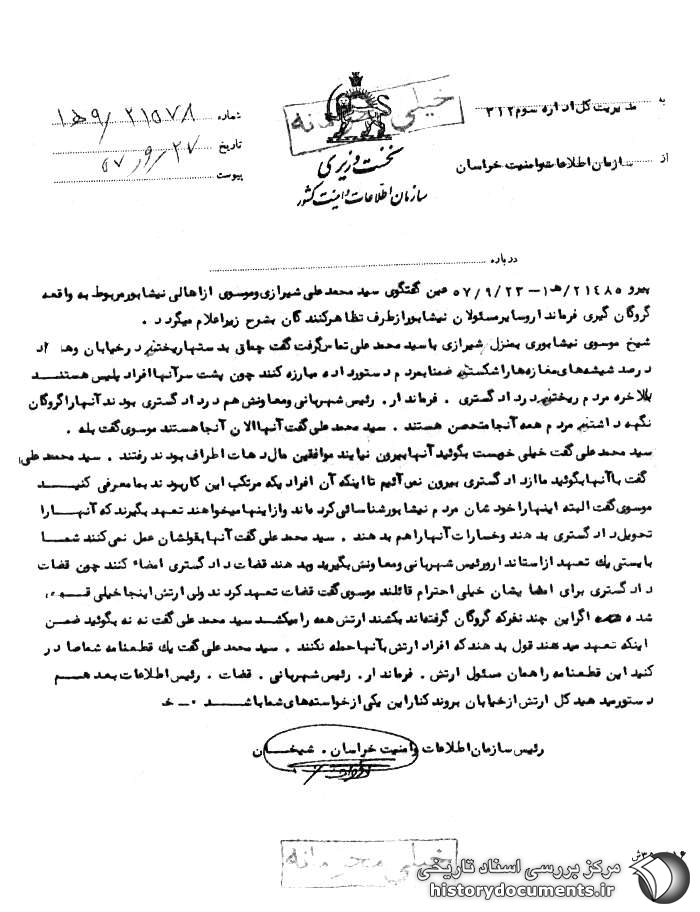 خیلی محرمانه
به مدیریت کل اداره سوم ۳۱۲
از سازمان اطلاعات و امنیت خراسان
نخست وزیری
سازمان اطلاعات و امنیت کشور
شماره ۲۱۵۷۸/۹ه۱
تاریخ ۲۷/۹/۵۷
پیوست
درباره
پیرو ۲۱۴۸۵/۹ه۱-۵۷/۹/۲۳ عین گفتگوی سید محمد علی شیرازی و موسوی از اهالی نیشابور مربوط به واقعه
گروگان گیری فرماندار و سایر مسئولان نیشابور از طرف تظاهر کنندگان بشرح زیر اعلام میگردد.
شیخ موسوی نیشابوری بمنزل شیرازی با سید محمد علی تماس گرفت گفت چماق بدستها ریختند در خیابان و هفتاد
درصد شیشه های مغازه ها را شکستند ضمنا بمردم دستور داده مبارزه کنند چون پشت سر آنها افراد پلیس هستند
بالاخره مردم ریختند در دادگستری . فرماندار . رئیس شهربانی و معاونش هم در دادگستری بودند آنها را گروگان
نگهداشتند مردم همه آنجا متحصن هستند . سید محمد علی گفت آنها الان آنجا هستند موسوی گفت بله .
سید محمد علی گفت خیلی خوبست بگوئید آنها بیرون نیایند موافقین مال دهات اطراف بودند رفتند . سید محمد علی
گفت با آنها بگوئید ما از دادگستری بیرون نمی آئیم تا اینکه آن افراد یکه مرتکب این کار بودند بما معرفی کنید
موسوی گفت البته اینها را خودشان مردم نیشابور شناسائی کرده اند و از اینها میخواهند تعهد بگیرند که آنها را
تحویل دادگستری بدهند و خسارات آنها را هم بدهند . سید محمد علی گفت آنها بقولشان عمل نمی کنند شما
بایستی یک تعهد از استاندار و رئیس شهربانی و معاونش بگیرید و بدهند قضات دادگستری امضاء کنند چون قضات
دادگستری برای امضا یشان خیلی احترام قائلند موسوی گفت قضات تعهد کردند ولی ارتش اینجا خیلی قسی
شده اگر این چند نفر که گروگان گرفته اند بکشند ارتش همه را میکشد سید محمد علی گفت نه نه بگوئید ضمن
اینکه تعهد میدهند قول بدهند که افراد ارتش بآنها حمله نکنند . سید محمد علی گفت یک قطعنامه شما صادر
کنید این قطعنامه را همان مسئول ارتش . فرماندار . رئیس شهربانی . قضات . رئیس اطلاعات بعد هم
دستور میدهید کل ارتش از خیابان بروند کنار این یکی از خواسته های شما باشد ۰-خ
رئیس سازمان اطلاعات و امنیت خراسان . شیخان
خیلی محرمانه
مرکز بررسی اسناد تاریخی
historydocuments.ir